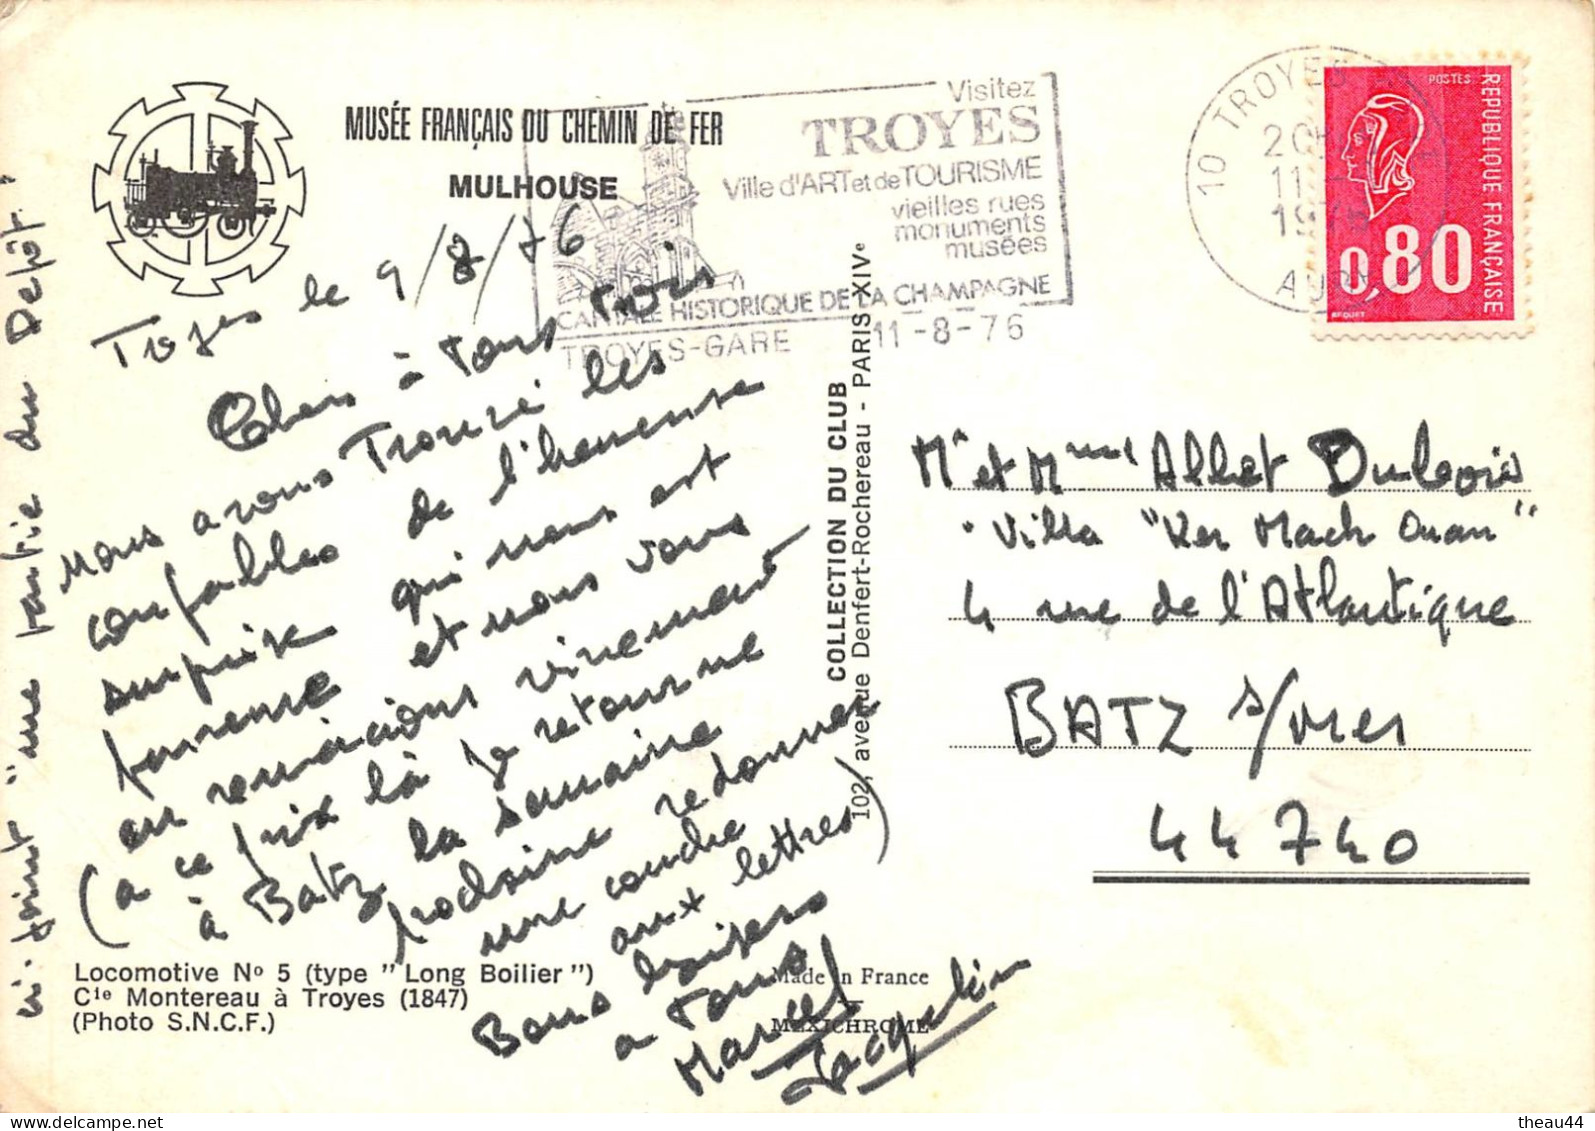 MUSÉE FRANÇAIS DU CHEMIN DE FER
MULHOUSE
Visitez
TROYES
Ville d'ART et de TOURISME
vieilles rues
monuments
musées
CAPITALE HISTORIQUE DE LA CHAMPAGNE
TROYES-GARE 11-8-76
10 TROYES
11
AUBE
POSTES
REPUBLIQUE FRANÇAISE
0,80
BEQUET
Troyes le 9/8/76
Chers à tous trois
nous avons trouvé les
coupables de l'heureuse
surprise qui nous est
parvenue et nous vous
en remercions vivement
(à ce prix là je retourne
à Batz la semaine
prochaine redonner
une couche
aux lettres)
Bons baisers
à tous
Marcel
Jacqueline
ci-joint "une partie du Depôt"
Mr et Mme Albert Dubois
Villa "Ker Mach Ouan"
4 rue de l'Atlantique
BATZ s/mer
44740
COLLECTION DU CLUB
102, avenue Denfert-Rochereau - PARIS-XIVe
Locomotive No 5 (type "Long Boilier")
Cie Montereau à Troyes (1847)
(Photo S.N.C.F.)
Made in France
MEXICHROME
theau44